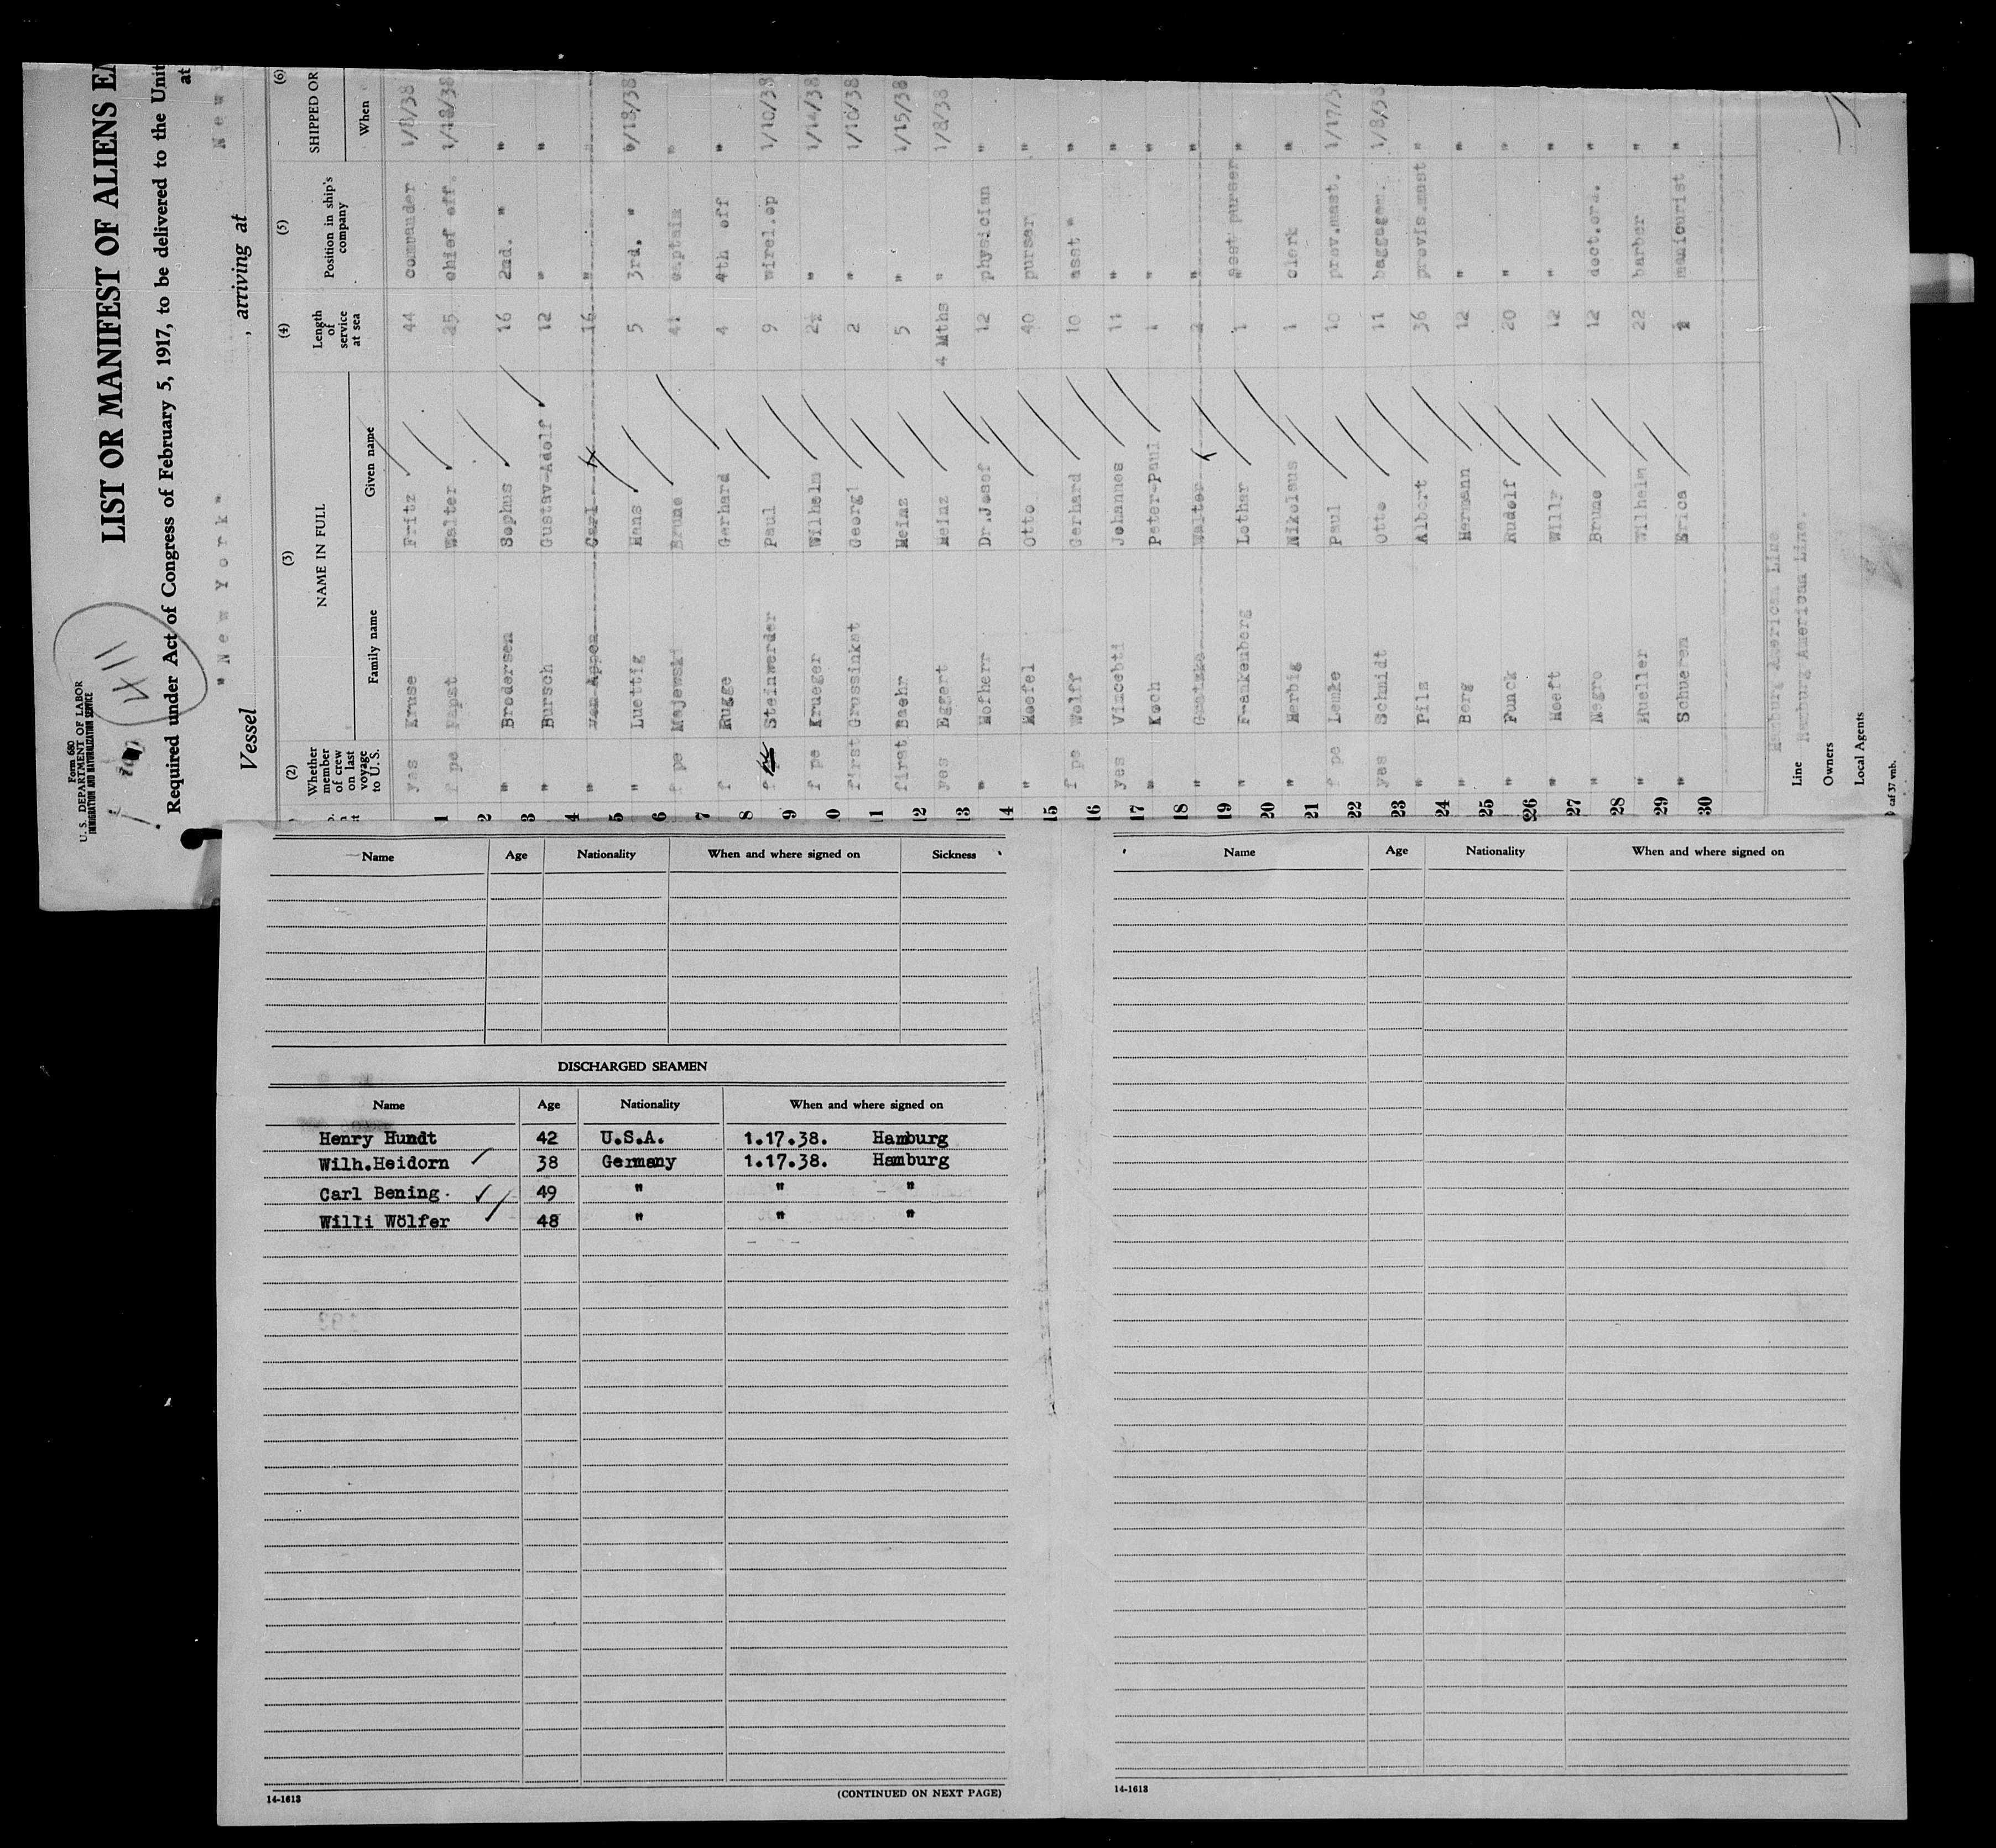 Form 680
U. S. DEPARTMENT OF LABOR
IMMIGRATION AND NATURALIZATION SERVICE
LIST OR MANIFEST OF ALIENS
Required under Act of Congress of February 5, 1917, to be delivered to the Unit
at
Vessel "New York" , arriving at New
(2) (3) (4) (5) (6)
Whether member of crew on last voyage to U. S. NAME IN FULL Length of service at sea Position in ship's company SHIPPED OR
Family name Given name When
yes Kruse Fritz 44 commander 1/8/38
1 Papst Walter 25 chief off. 1/18/38
2 " Brodersen Sophus 16 2nd. " "
3 " Bursch Gustav-Adolf 12 " "
4 " Carl 16 " "
5 " Luettig Hans 5 3rd. " 1/18/38
6 Majewski Bruno "
7 f Rugge Gerhard 4 4th off "
8 Steinwerder Paul 9 wirel.op 1/10/38
9 f pe Krueger Wilhelm " 1/14/38
first Grussinkat Georg 2 " 1/10/38
first Baehr Heinz 5 " 1/15/38
12 yes Eggert Heinz 4 Mths " 1/8/38
13 " Hofherr Dr.Josef 12 physician "
14 " Otto 40 purser "
15 f pe Wolff Gerhard 10 asst " "
16 yes Johannes 11 " "
17 " Koch Peter-Paul 1 " "
18 " Walter 2 " "
19 " Frankenberg Lothar 1 asst purser "
20 " Herbig Nikolaus 1 clerk "
21 f pe Lemke Paul 10 prov.mast. 1/17/3
22 yes Schmidt Otto 11 baggagem. 1/8/38
23 " Pilz Albert 36 provis.mast "
24 " Berg Hermann 12 " "
25 " Funck Rudolf 20 " "
26 " Hoeft Willy 12 " "
27 " Negro Bruno 12 "
28 " Mueller Wilhelm 22 barber "
29 " Schueren Erica manicurist "
30
Line Hamburg American Line
Owners Hamburg American Line.
Local Agents
Name Age Nationality When and where signed on Sickness
DISCHARGED SEAMEN
Name Age Nationality When and where signed on
Henry Hundt 42 U.S.A. 1.17.38. Hamburg
Wilh.Heidorn 38 Germany 1.17.38. Hamburg
Carl Bening. 49 " " "
Willi Wölfer 48 " " "
14-1613 (CONTINUED ON NEXT PAGE)
Name Age Nationality When and where signed on
14-1613